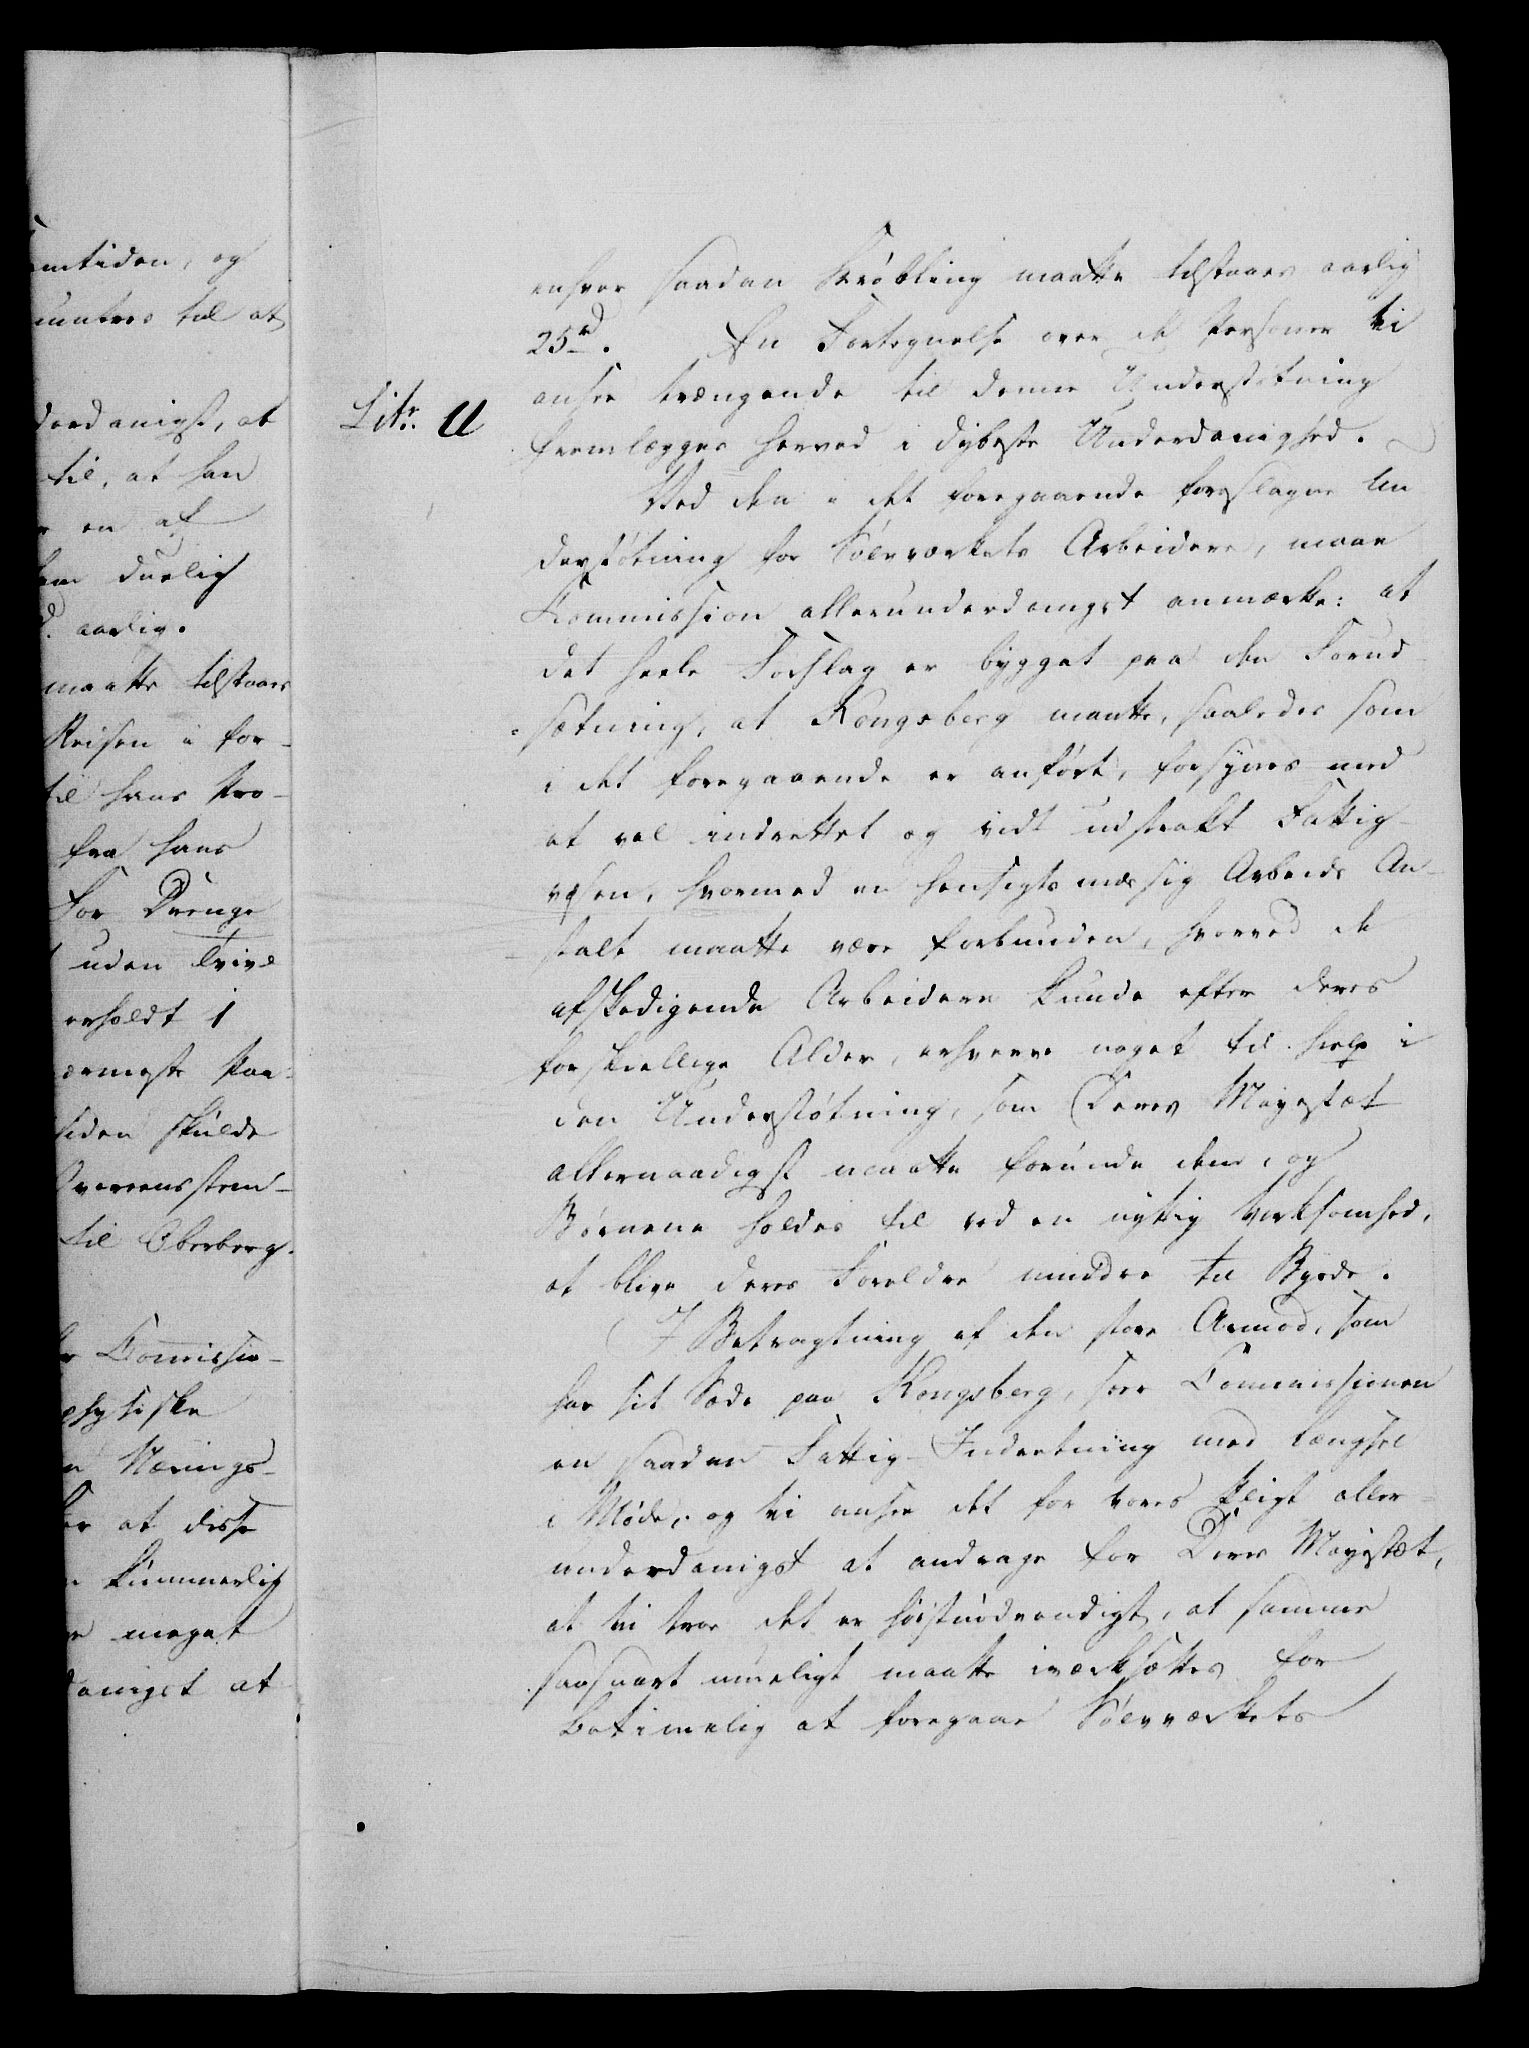 mtiden, og
muntres til at
derdanigst, at
til, at han
en af
duelig
d. aarlig.
maatte tilstaaes
Reisen i for-
til hans Pro-
fra hans
for Drenge
uden Tvivl
erholdt i
nermeste Paa-
siden skulde
Overeensstem-
til Oberberg.
Commissio-
physiske
Nærings-
at disse
kummerlig
meget
danigst at
enhver saadan Krøbling maatte tilstaaes aarlig
25 rd. En Fortegnelse over de Personer vi
ansee trængende til denne Understøtning
Litr. U
fremlægges herved i dybeste Underdanighed.
Ved den i det foregaaende foreslagne Un
derstøtning for Sølvværkets Arbeidere, maae
Kommission allerunderdanigst anmærke: at
det heele Forslag er bygget paa den Forud
sætning, at Kongsberg maatte, saaledes som
i det foregaaende er anført, forsynes med
et vel indrettet og vidt udstrakt Fattig-
væsen, hvormed en hensigtsmæssig Arbeids An-
stalt maatte være forbunden, hvorved de
afskedigende Arbeidere kunde efter deres
forskiellige Alder, erhverve noget til Hielp i
den Understøtning, som Deres Mayestæt
allernaadigst maatte forunde dem, og
Børnene holdes til ved en nyttig Virksomhed,
at blive deres Foreldre mindre til Byrde.
I Betragtning af den store Armod, som
har sit Sæde paa Kongsberg, seer Commissionen
en saadan Fattig-Indretning med Længsel
i Møde, og vi ansee det for vores Pligt aller-
underdanigst at andrage for Deres Mayestæt,
at vi troe det er høistnødvendigt, at samme
saasnart mueligt maatte iværksættes for
betimelig at foregaae Sølvværkets